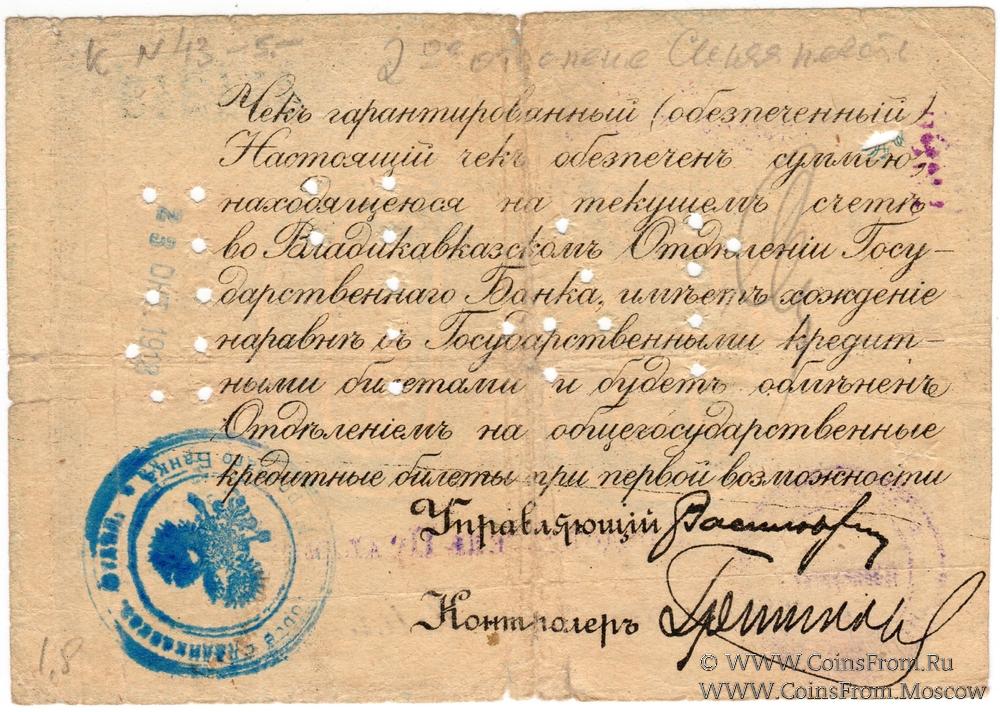 К N 43 -5.-
2
Чекъ гарантированный (обезпеченный)
Настоящій чекъ обезпеченъ суммою,
находящеюся на текущемъ счетѣ
во Владикавказскомъ Отдѣленіи Госу-
дарственнаго Банка, имѣетъ хожденіе
наравнѣ съ Государственными кредит-
ными билетами и будетъ обмѣненъ
Отдѣленіемъ на общегосударственные
кредитные билеты при первой возможности
Управляющій
Контролеръ
1,8
© WWW.CoinsFrom.Ru
WWW.CoinsFrom.Moscow